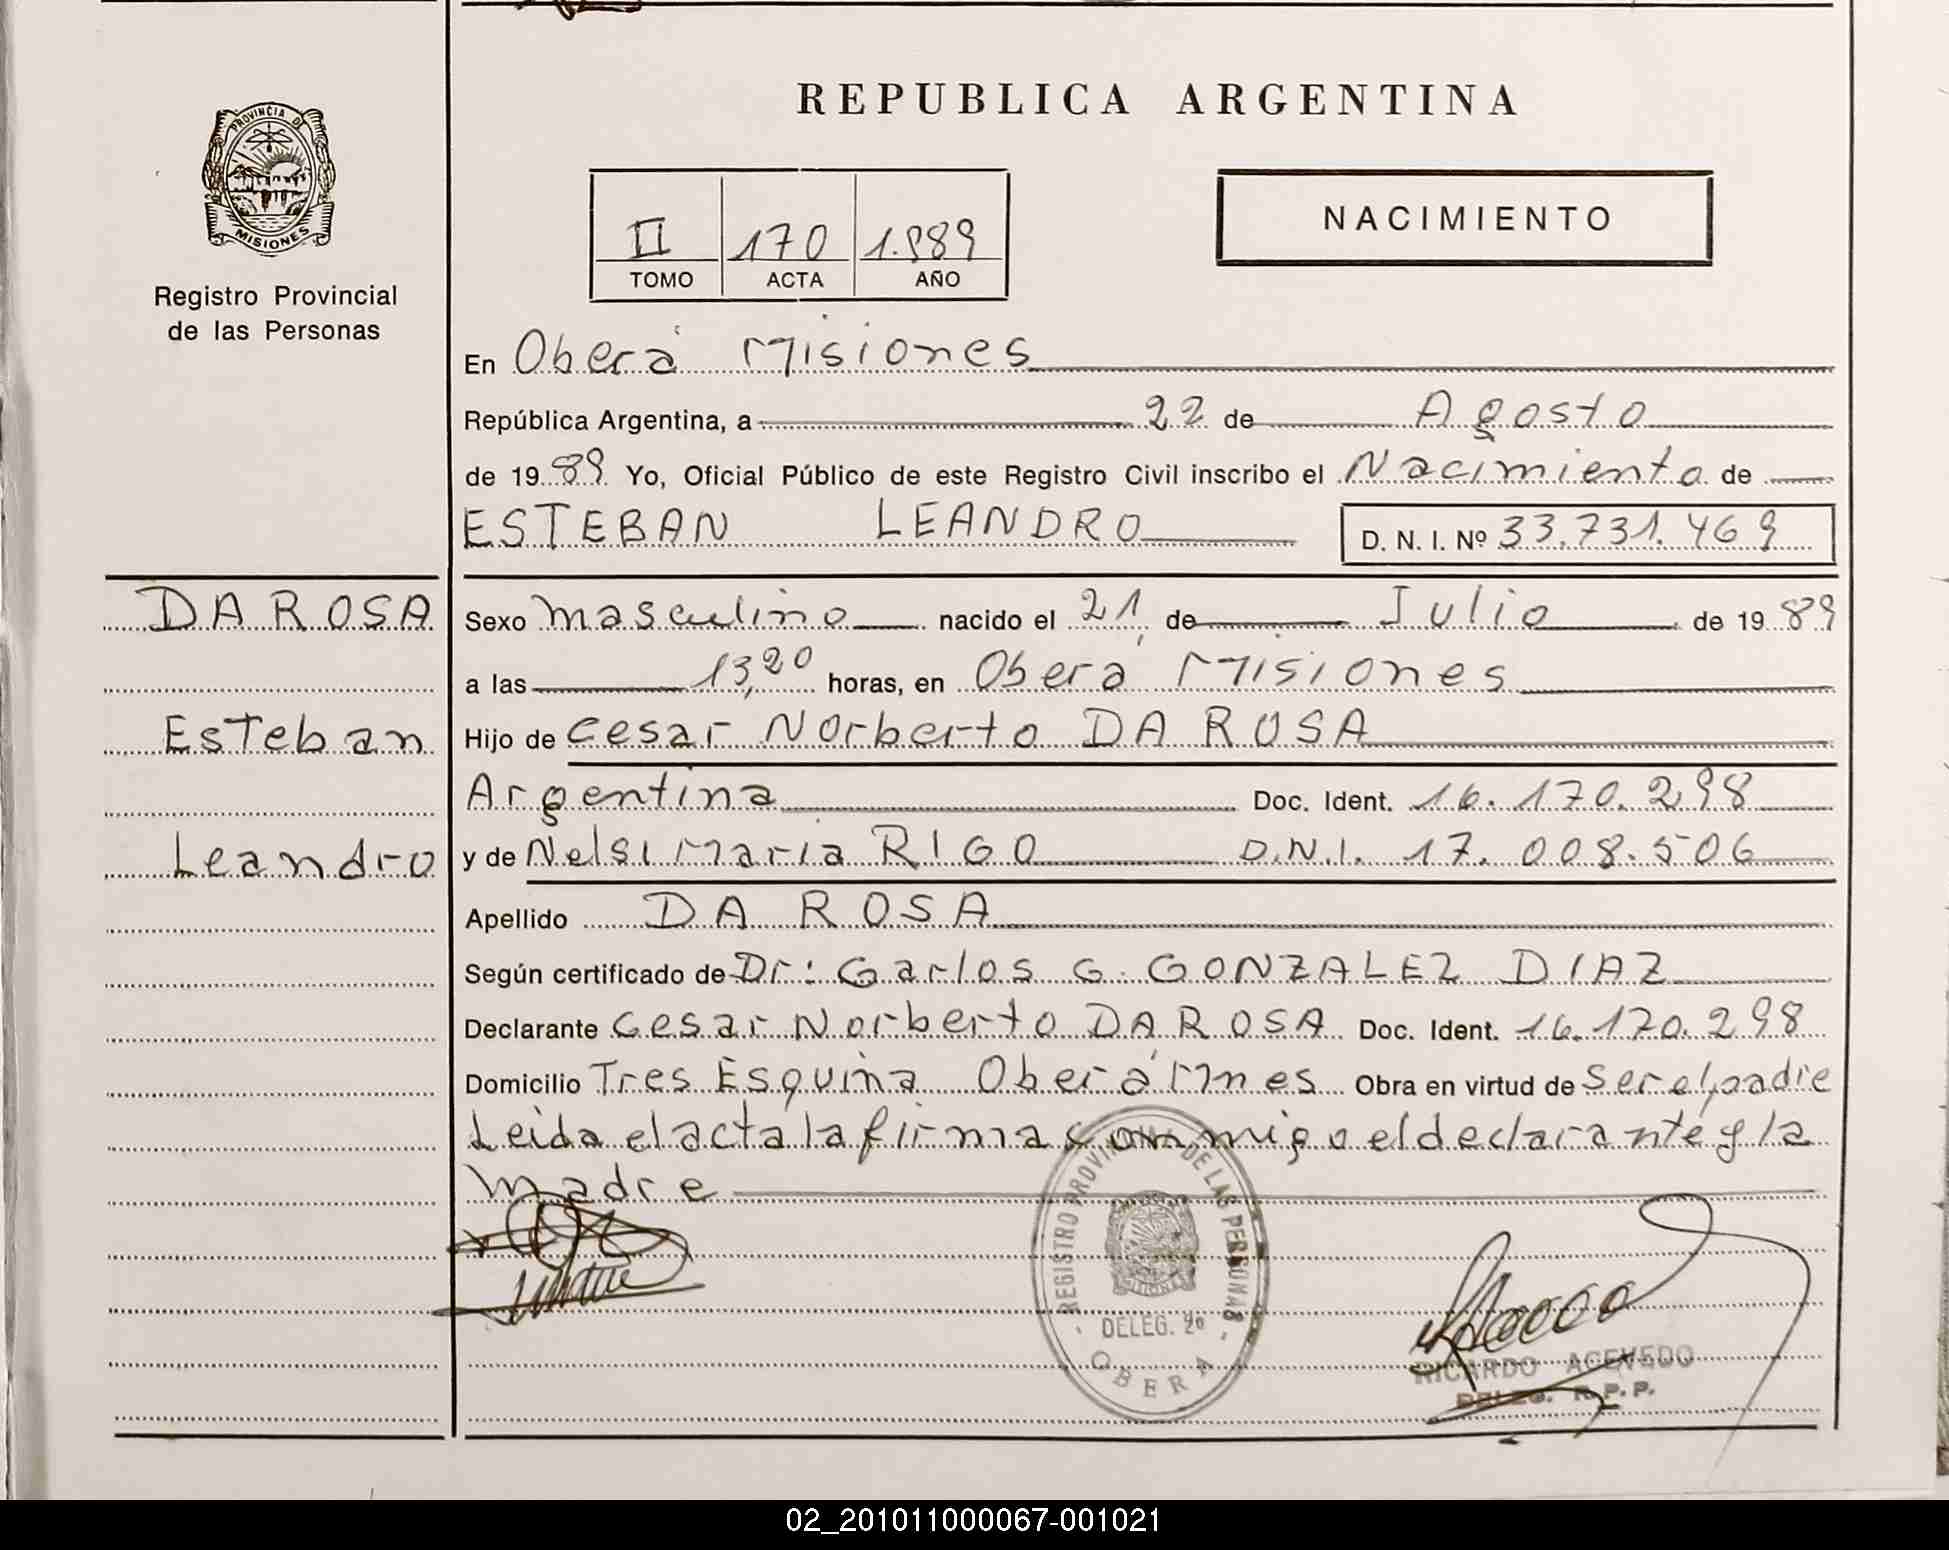 PROVINCIA DE
MISIONES
Registro Provincial
de las Personas
DA ROSA
Esteban
Leandro
REPUBLICA ARGENTINA
II 170 1.989
TOMO ACTA AÑO
NACIMIENTO
En Oberá Misiones
República Argentina, a 22 de Agosto
de 1989 Yo, Oficial Público de este Registro Civil inscribo el Nacimiento de
ESTEBAN LEANDRO D. N. I. Nº 33.731.469
Sexo masculino nacido el 21 de Julio de 1989
a las 13,20 horas, en Oberá Misiones
Hijo de Cesar Norberto DA ROSA
Argentina Doc. Ident. 16.170.298
y de Nelsi Maria RIGO D.N.I. 17.008.506
Apellido DA ROSA
Según certificado de Dr: Carlos G. GONZALEZ DIAZ
Declarante Cesar Norberto DA ROSA Doc. Ident. 16.170.298
Domicilio Tres Esquina Oberá Mnes Obra en virtud de ser el padre
Leida el acta la firma conmigo el declarante y la
madre
REGISTRO PROVINCIAL DE LAS PERSONAS
DELEG. 2º
OBERA
RICARDO ACEVEDO
DELEG. R.P.P.
02_201011000067-001021